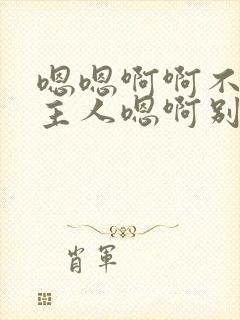 嗯嗯啊啊不
主人嗯啊别
肖军